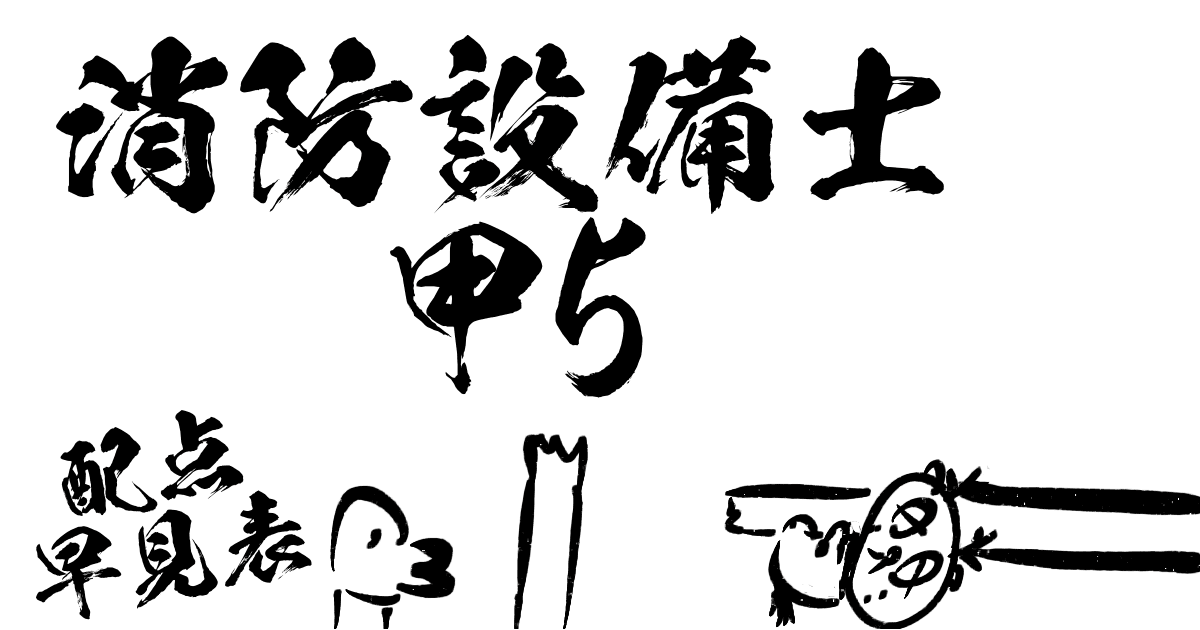 消防設備士
甲5
配点
早見表